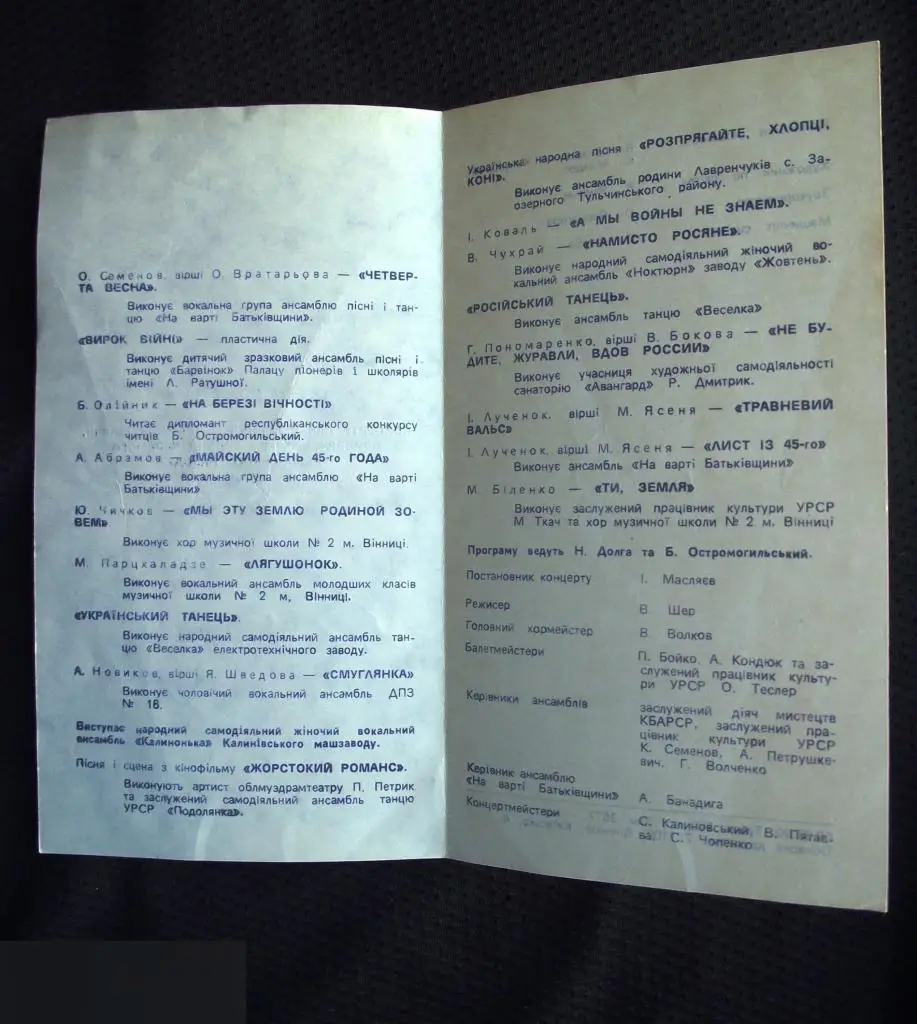 О. Семенов, вірші О. Вратарьова — «ЧЕТВЕР-
ТА ВЕСНА».
Виконує вокальна група ансамблю пісні і тан-
цю «На варті Батьківщини».
«ВИРОК ВІЙНІ» — пластична дія.
Виконує дитячий зразковий ансамбль пісні і
танцю «Барвінок» Палацу піонерів і школярів
імені Л. Ратушної.
Б. Олійник — «НА БЕРЕЗІ ВІЧНОСТІ»
Читає дипломант республіканського конкурсу
читців Б. Остромогильський.
А. Абрамов — «МАЙСКИЙ ДЕНЬ 45-го ГОДА»
Виконує вокальна група ансамблю «На варті
Батьківщини»
Ю. Чичков — «МЫ ЭТУ ЗЕМЛЮ РОДИНОЙ ЗО-
ВЕМ».
Виконує хор музичної школи № 2 м. Вінниці.
М. Парцхаладзе — «ЛЯГУШОНОК».
Виконує вокальний ансамбль молодших класів
музичної школи № 2 м, Вінниці.
«УКРАЇНСЬКИЙ ТАНЕЦЬ».
Виконує народний самодіяльний ансамбль тан-
цю «Веселка» електротехнічного заводу.
А. Новиков, вірші Я. Шведова — «СМУГЛЯНКА»
Виконує чоловічий вокальний ансамбль ДПЗ
№ 18.
Виступає народний самодіяльний жіночий вокальний
ансамбль «Калинонька» Калинівського машзаводу.
Пісня і сцена з кінофільму «ЖОРСТОКИЙ РОМАНС».
Виконують артист облмуздрамтеатру П. Петрик
та заслужений самодіяльний ансамбль танцю
УРСР «Подолянка».
Українська народна пісня «РОЗПРЯГАЙТЕ, ХЛОПЦІ,
КОНІ».
Виконує ансамбль родини Лавренчуків с. За-
озерного Тульчинського району.
І. Коваль — «А МЫ ВОЙНЫ НЕ ЗНАЕМ».
В. Чухрай — «НАМИСТО РОСЯНЕ».
Виконує народний самодіяльний жіночий во-
кальний ансамбль «Ноктюрн» заводу «Жовтень».
«РОСІЙСЬКИЙ ТАНЕЦЬ».
Виконує ансамбль танцю «Веселка»
Г. Пономаренко, вірші В. Бокова — «НЕ БУ-
ДИТЕ, ЖУРАВЛИ, ВДОВ РОССИИ»
Виконує учасниця художньої самодіяльності
санаторію «Авангард» Р. Дмитрик.
І. Лученок, вірші М. Ясеня — «ТРАВНЕВИЙ
ВАЛЬС»
І. Лученок, вірші М. Ясеня — «ЛИСТ ІЗ 45-го»
Виконує ансамбль «На варті Батьківщини»
М. Біленко — «ТИ, ЗЕМЛЯ»
Виконує заслужений працівник культури УРСР
М Ткач та хор музичної школи № 2 м. Вінниці
Програму ведуть Н. Долга та Б. Остромогильський.
Постановник концерту І. Масляєв
Режисер В. Шер
Головний хормейстер В. Волков
Балетмейстери П. Бойко, А. Кондюк та за-
служений працівник культу-
ри УРСР О. Теслер
Керівники ансамблів заслужений діяч мистецтв
КБАРСР, заслужений пра-
цівник культури УРСР
К. Семенов, А. Петрушке-
вич, Г. Волченко
Керівник ансамблю
«На варті Батьківщини» А. Банадига
Концертмейстери С. Калиновський, В. Пятає-
ва, С. Чопенко